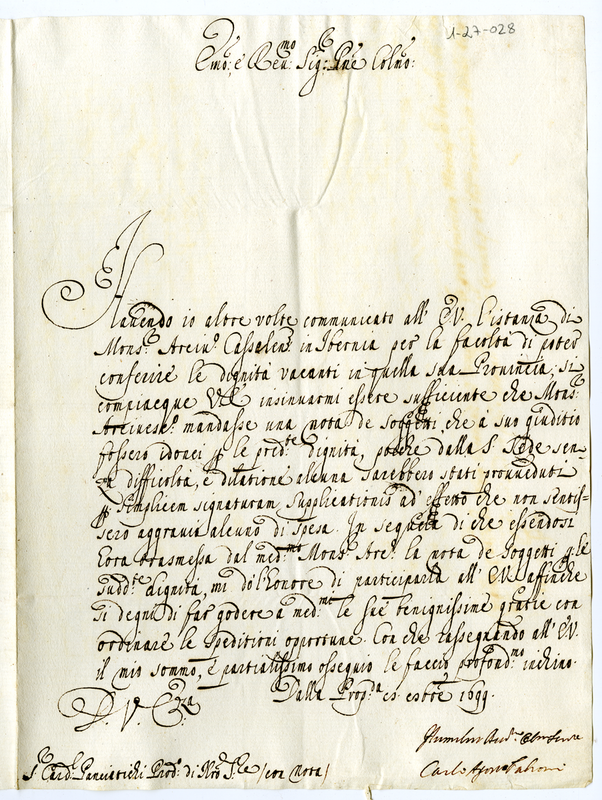 U-27-028
Em.o e Reu.mo Sig.r Pne Colmo:
Hauendo io altre volte communicato all' EV. l'istanza di
Mons.r Arciu.o Cassalen.e in Ibernia per la facoltà di poter
conferire le dignità vacanti in quella sua Prouincia, si
compiacque VE insinuarmi essere sufficiente che Mons.r
Arciuesc.o mandasse una nota de soggetti che à suo giuditio
fossero idonei p le pred.te dignità, poiche dalla S. Sede sen-
za difficoltà, e dilatione alcuna sarebbero stati proueduti
p simplicem signaturam supplicationis ad effetto che non sentis-
sero aggrauio alcuno di spesa. In sequela di che essendosi
hora trasmessa dal med.mo Mons.r Arc.o la nota de soggetti p le
sudd.te dignità, mi dò l'honore di participarla all' EV. affinche
si degni di far godere a med.mi le sue benignissime gratie con
ordinare le speditioni opportune. Con che rassegnando all' EV.
il mio sommo, e partialissimo ossequio le faccio profond.mo inchino.
D. V. Emza Dalla Prop.da 1699.
Humilmo
S.r Card. Panciatichi Prod.o di Nro S.re (con nota) Carlo Agosto Fabroni